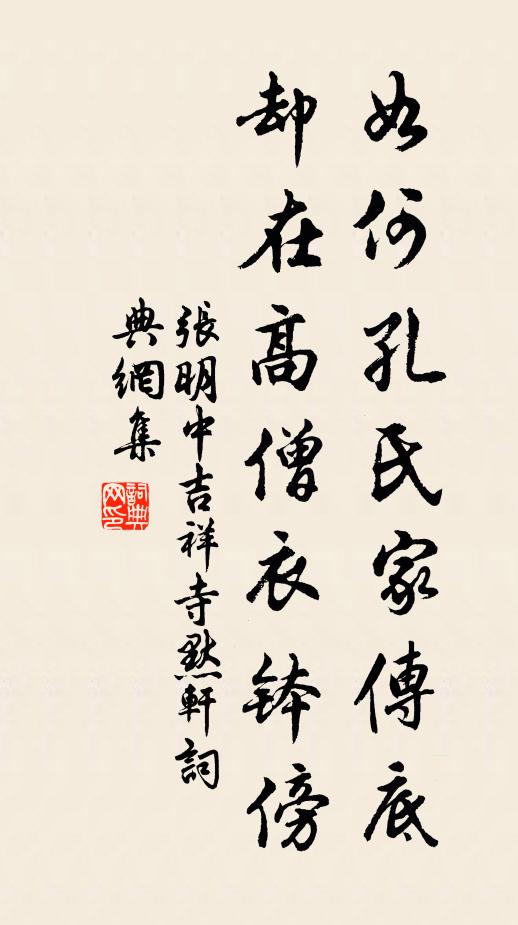 如何孔氏家傳底
却在高僧衣鉢傍
張明中吉祥寺默軒詞
典網集
詞典
网印